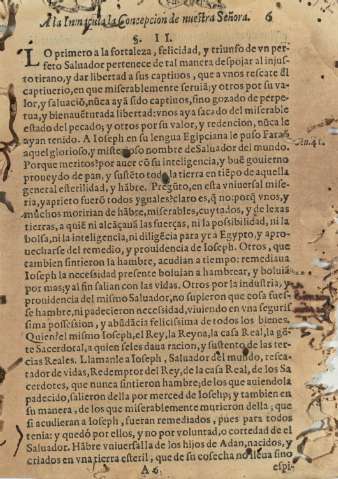 A la Inmaculada Concepcion de nuestra Señora. 6
§. II.
LO primero a la fortaleza, felicidad, y triunfo de vn perfeto
Saluador pertenece de tal manera despojar al injusto
tirano, y dar libertad a sus captiuos, que a vnos rescate ẽl
captiuerio, en que miserablemente seruiã; y otros por su valor,
y saluaciõ, nũca ayã sido captiuos, sino gozado de perpetua,
y bienauẽturada libertad; vnos aya sacado del miserable
estado del pecado; y otros por su valor, y redencion, nũca le
ayan tenido. A Ioseph en su lengua Egipciana le puso Faraõ
aquel glorioso, y misterioso nombre de Saluador del mundo.
Porque meritos? por auer cõ su inteligencia, y buẽ gouierno
proueydo de pan, y susteto toda la tierra en tiẽpo de aquella
general esterilidad, y hãbre. Pregũto, en esta vniuersal miseria,
y aprieto fuerõ todos yguales? claro es, q̃ no. porq̃ vnos, y
muchos moririan de hãbre, miserables, cuytados, y de lexas
tierras, a quiẽ ni alcãçauã las fuerças, ni la possibilidad, ni la
bolsa, ni la inteligencia, ni diligẽcia para yr a Egypto, y aprouecharse
del remedio, y prouidencia de Ioseph. Otros, que
tambien sintieron la hambre, acudian a tiempo: remediaua
Ioseph la necessidad presente boluian a hambrear, y boluiã
por mas; y al fin salian con las vidas. Otros por la industria, y
prouidencia del mismo Saluador, no supieron que cosa fuesse
hambre, ni padecieron necessidad, viuiendo en vna segurissima
possession, y abũdãcia felicissima de todos los bienes.
Quienes? el mismo Ioseph, el Rey, la Reyna, la casa Real, la gẽte
Sacerdotal, a quien se les daua racion, y sustento de las tercias
Reales. Llamanle a Ioseph, Saluador del mundo, rescatador
de vidas, Redemptor del Rey, de la casa Real, de los Sacerdotes,
que nunca sintieron hambre; de los que auiendola
padecido, salieron della por merced de Ioseph, y tambien en
su manera, de los que miserablemente murieron della; que
si acudieran a Ioseph, fueran remediados, pues para todos
tenia: y quedó por ellos, y no por voluntad, o cortedad de el
Saluador. Hãbre vniuersal fue la de los hijos de Adan, nacidos, y
criados en vna tierra esteril, que de su cosecha no lleua sino
A 6. espi-